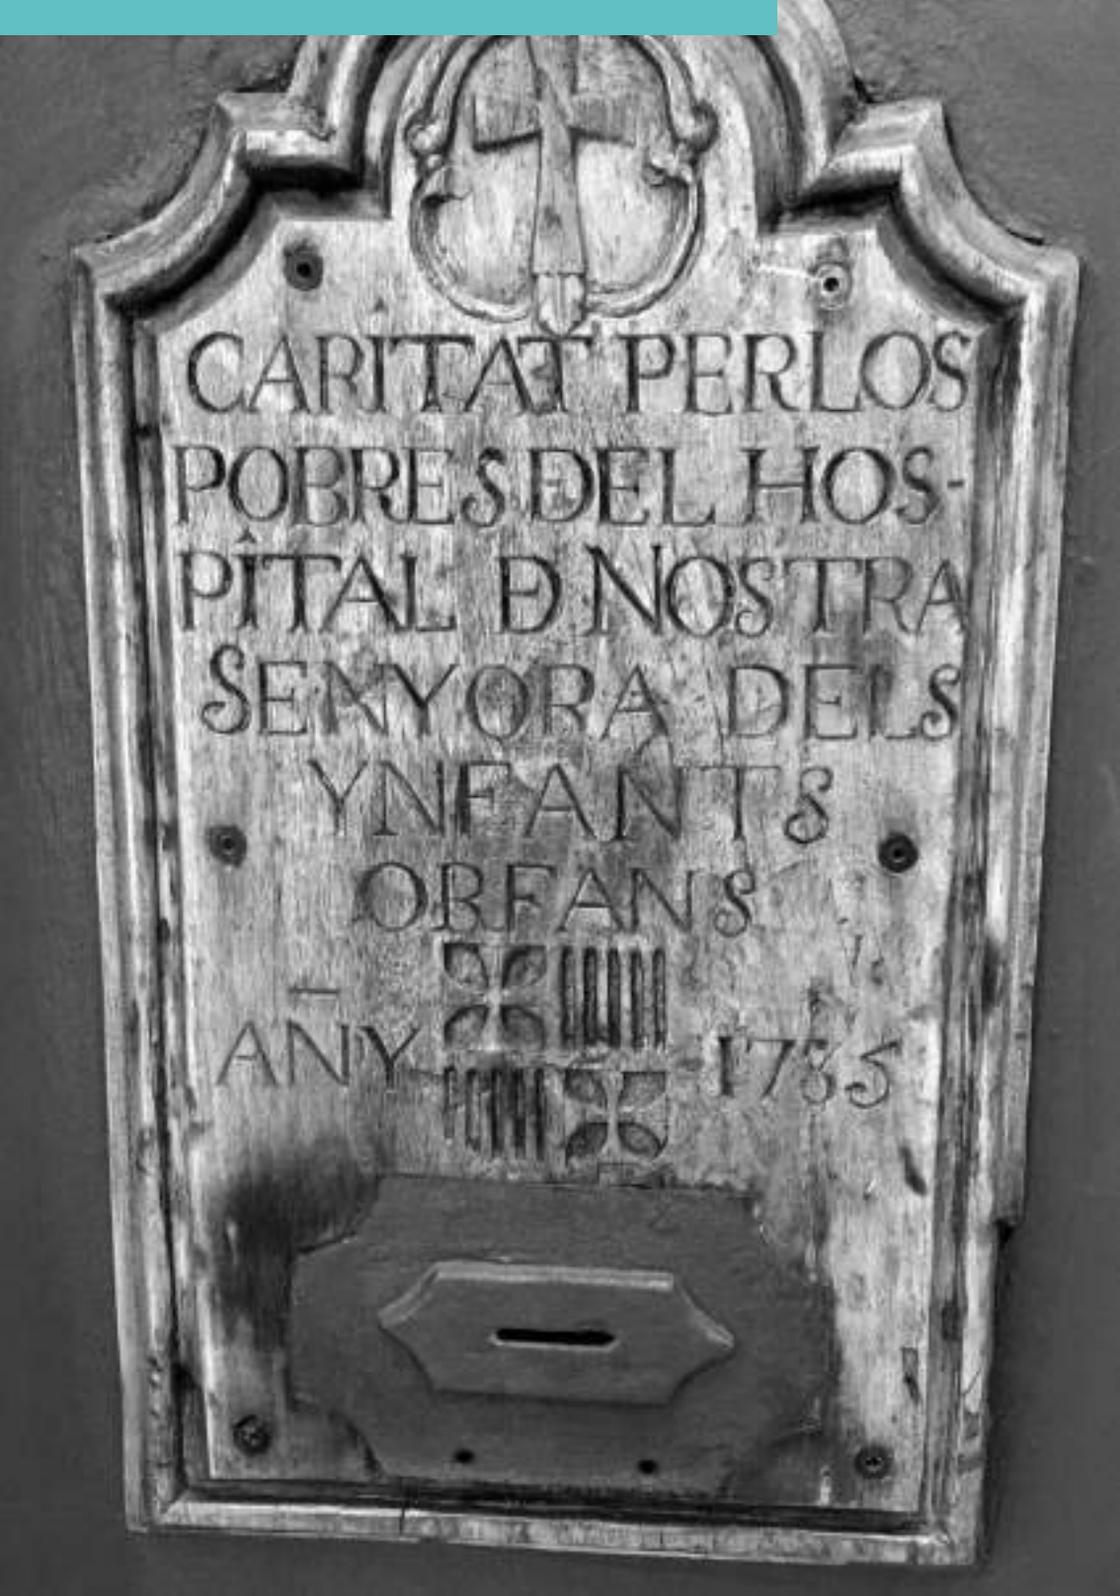 CARITAT PERLOS
POBRES DEL HOS-
PÎTAL Ð NOSTRA
SENYORA DELS
YNFANTS
ORFANS
ANY 1785